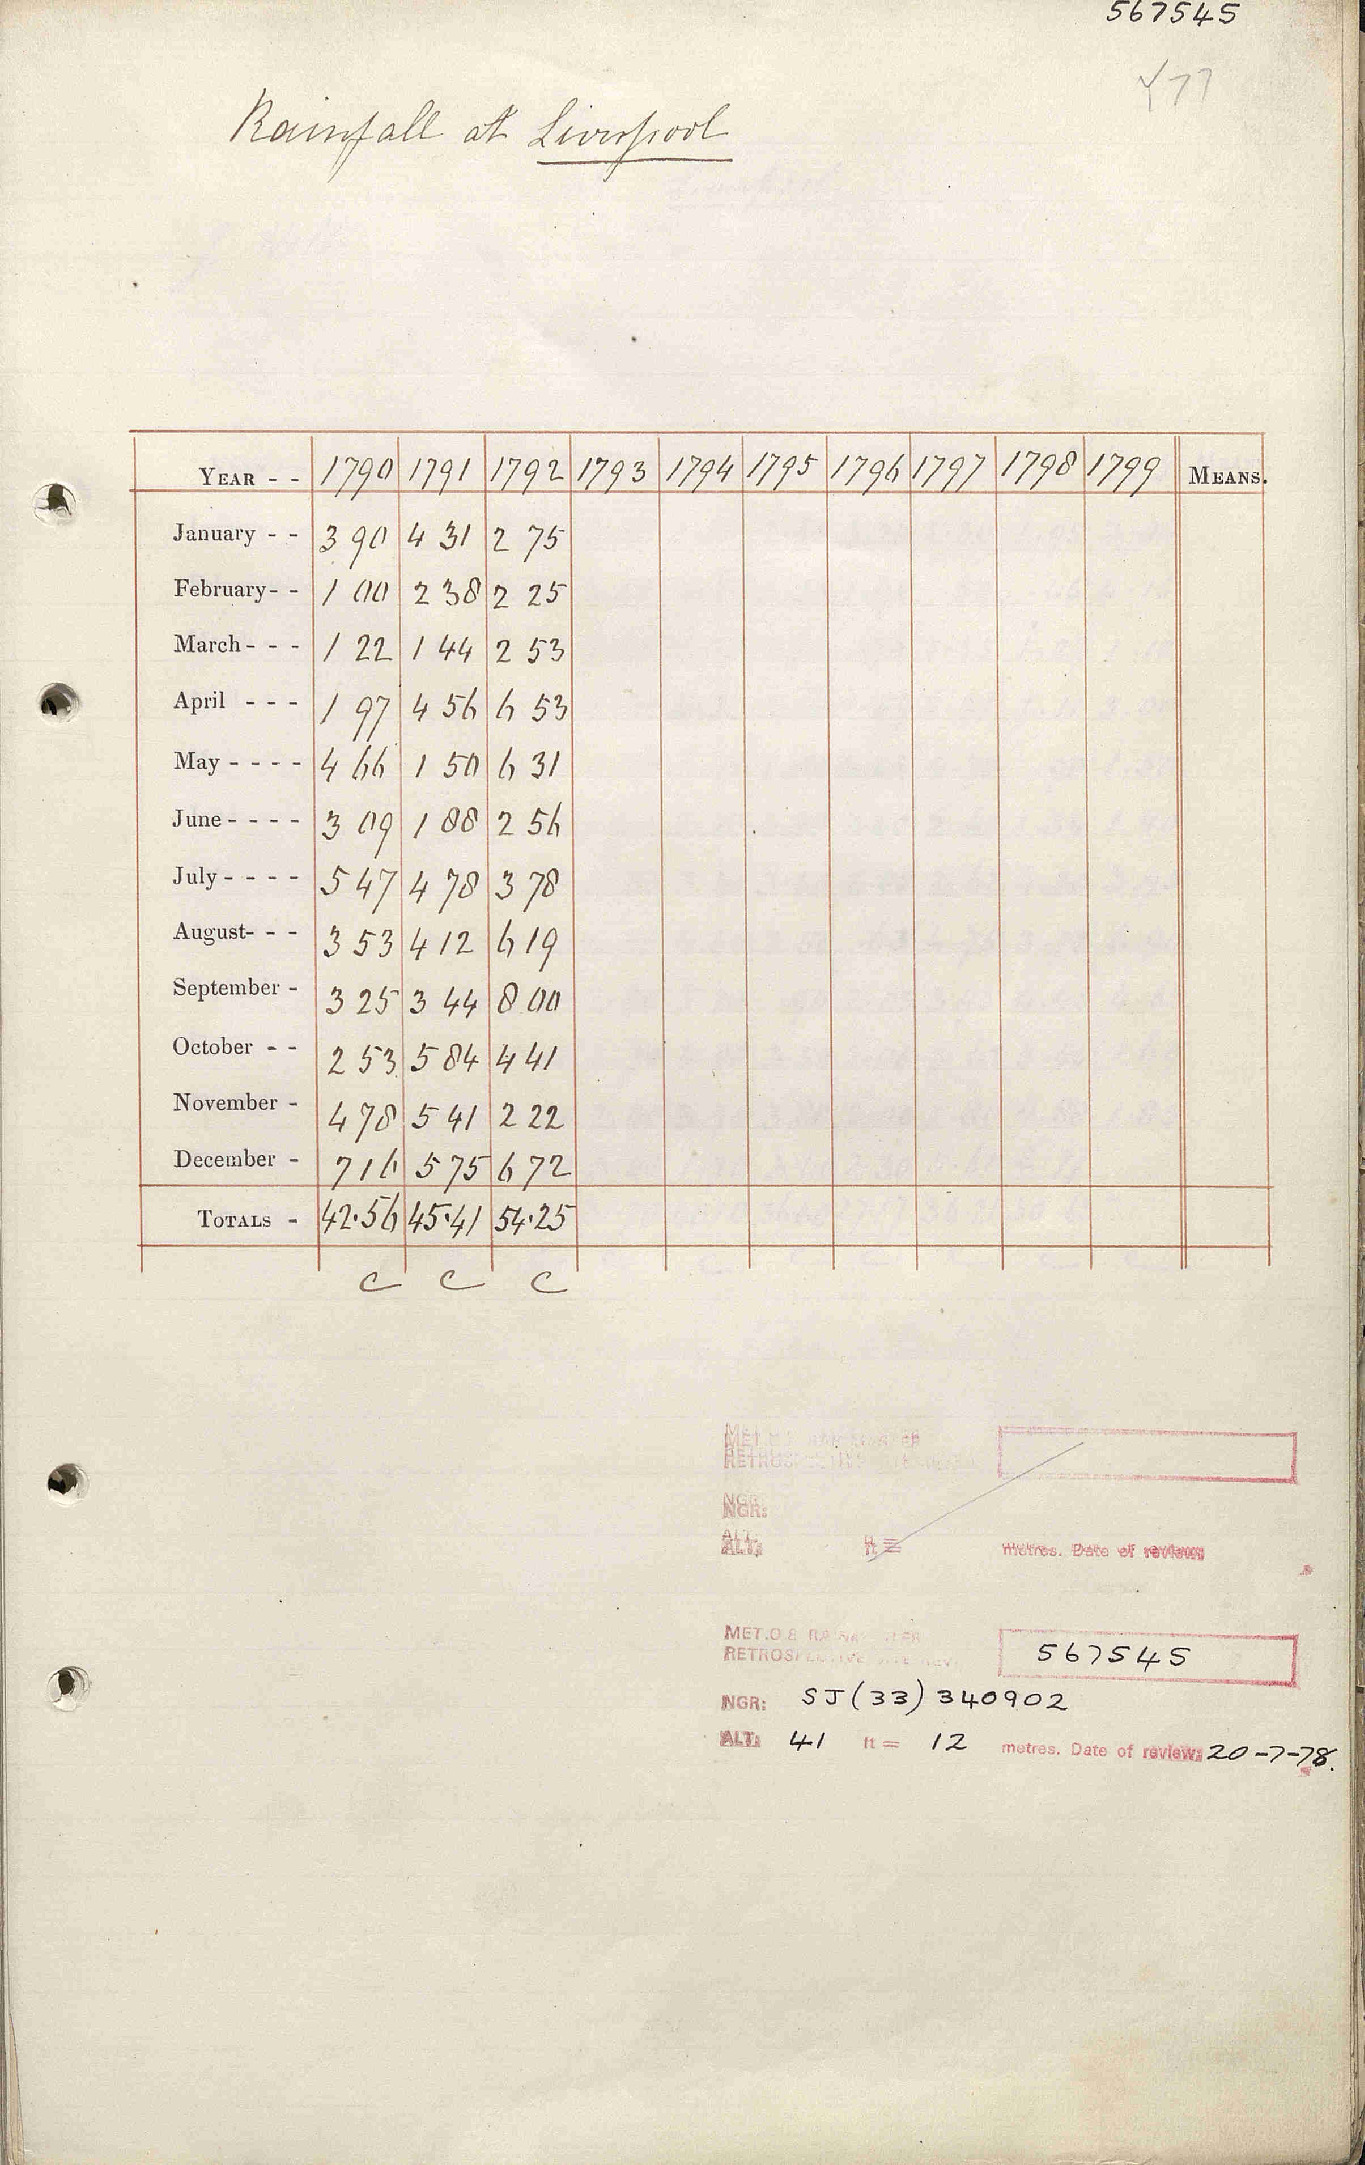 567545
Rainfall at Liverpool
YEAR - - 1790 1791 1792 1793 1794 1795 1796 1797 1798 1799 MEANS.
January - - 3 90 4 31 2 75
February - - 1 00 2 38 2 25
March - - - 1 22 1 44 2 53
April - - - 1 97 4 56 6 53
May - - - - 4 66 1 50 6 31
June - - - - 3 09 1 88 2 56
July - - - - 5 47 4 78 3 78
August - - - 3 53 4 12 6 19
September - 3 25 3 44 8 00
October - - 2 53 5 84 4 41
November - 4 78 5 41 2 22
December - 7 16 5 75 6 72
TOTALS - 42·56 45·41 54·25
C C C
MET.O.8
RETROSPECTIVE
NGR:
ALT: ft = metres. Date of review:
MET.O.8
RETROSPECTIVE SITE REV. 567545
NGR: SJ(33)340902
ALT: 41 ft = 12 metres. Date of review: 20-7-78.